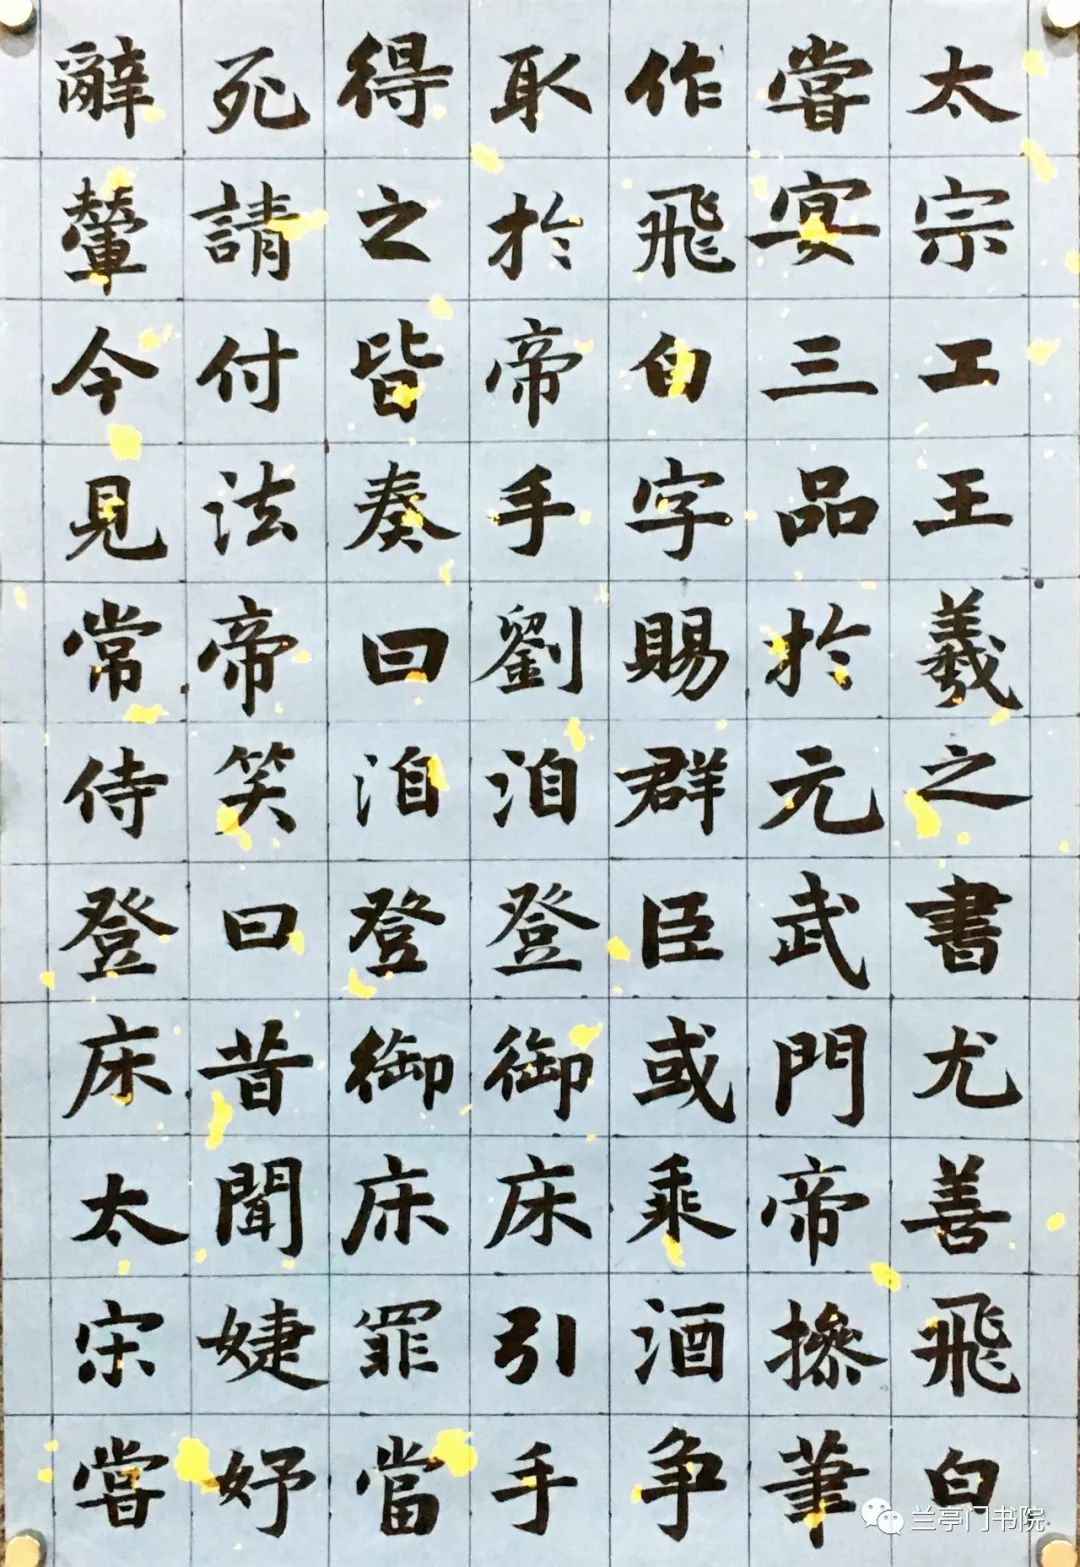 太宗工王羲之書尤善飛白
嘗宴三品於元武門帝摻筆
作飛白字賜群臣或乘酒争
取於帝手劉洎登御床引手
得之皆奏曰洎登御床罪當
死請付法帝笑曰昔聞婕妤
辭輦今見常侍登床太宋嘗
兰亭门书院